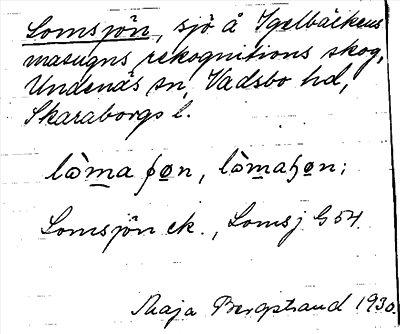 Lomsjön, sjö å Igelbäckens
masugns rekognitions skog,
Undenäs sn, Vadsbo hd,
Skaraborgs l.
lòma ʃøn, lòmaɧøn;
Lomsjön ek., Lomsj G 54
Maja Bergstrand 1930.